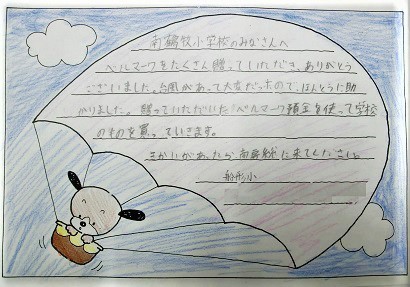 南鶴牧小学校のみなさんへ
ベルマークをたくさん贈っていただき、ありがとう
ございました。台風があって大変だったので、ほんとうに助
かりました。贈っていただいたベルマーク預金を使って学校
のものを買っていきます。
きかいがあったら南房総に来てください。
船形小